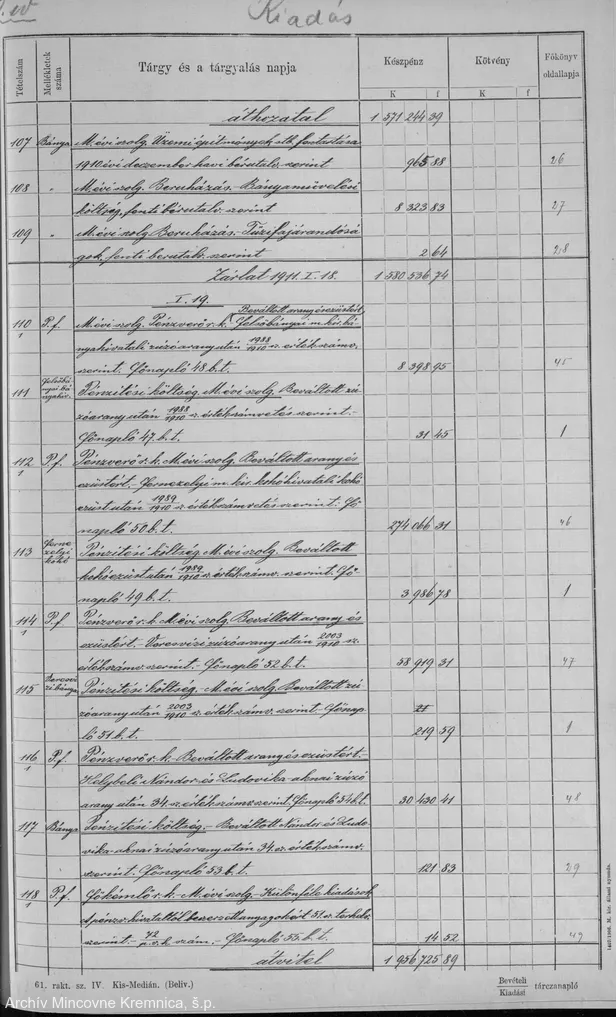 Kiadás
Tételszám
Mellékletek száma
Tárgy és a tárgyalás napja
Készpénz
Kötvény
Főkönyv oldallapja
K f K f
áthozatal 1 571 244 39
107 Bánya M. évi szolg. Üzemi építmények stb. fentartására
1910 évi dezember havi bérutalv. szerint 965 88 26
108 " M. évi szolg. Beruházás.- Bányamüvelési
költség, fenti bérutalv. szerint 8 323 83 27
109 " M. évi szolg. Beruházás.- Tüzifajárandósá
gok, fenti berutalv. szerint 2 64 28
Zárlat 1911. I. 18. 1 580 536 74
I. 19.
Beváltott arany és ezüstért,
110 P. f. M. évi szolg. Pénzverő r. k. Felsőbányai m. kir. bá
nyahivatali zúzóarany után 1988/1910 sz. értékszámv.
szerint. Főnapló 48. b. t. 8 398 95 45
111 Felsőbá
nyai bá
nyahiv. Pénzitési költség. M. évi szolg. Beváltott zú
zóarany után 1988/1910 sz. értékszámvetés szerint.-
Főnapló 47. b. t. 31 45 1
112 P. f. Pénzverő r. k. M. évi szolg. Beváltott arany és
ezüstért. Fernezelyi m. kir. kohóhivatali kohó
ezüst után 1989/1910 sz. értékszámvetés szerint. Fő
napló 50. b. t. 274 066 31 46
113 Ferne
zelyi
kohó Pénzitési költség. M. évi szolg. Beváltott
kohóezüst után 1989/1910 sz. értékszámv. szerint. Fő
napló 49. b. t. 3 986 78 1
114 P. f. Pénzverő r. k. M. évi szolg. Beváltott arany és
ezüstért. Veresvizi zúzóarany után 2003/1910 sz.
értékszámv. szerint.- Főnapló 52. b. t. 58 919 31 47
115 Veresvi
zi bánya Pénzitési költség.- M. évi szolg. Beváltott zú
zóarany után 2003/1910 sz. értékszámv. szerint.- Főnap
ló 51. b. t. 219 59 1
116 P. f. Pénzverő r. k.- Beváltott arany és ezüstért.-
Helybeli Nándor és Ludovika aknai zúzó
arany után 34. sz. értékszámv. szerint. Főnapló 54. b. t. 30 430 41 48
117 Bánya Pénzitési költség.- Beváltott Nándor és Ludo
vika aknai zúzóarany után 34. sz. értékszámv.
szerint. Főnapló 53. b. t. 121 83 29
118 P. f. Főkémlő r. k.- M. évi szolg.- Különféle kiadások
szerint.- Főnapló 55. b. t. 14 52 49
átvitel 1 956 725 89
61. rakt. sz. IV. Kis-Medián. (Beliv.)
Bevételi
Kiadási tárczanapló
Archív Mincovne Kremnica, š.p.